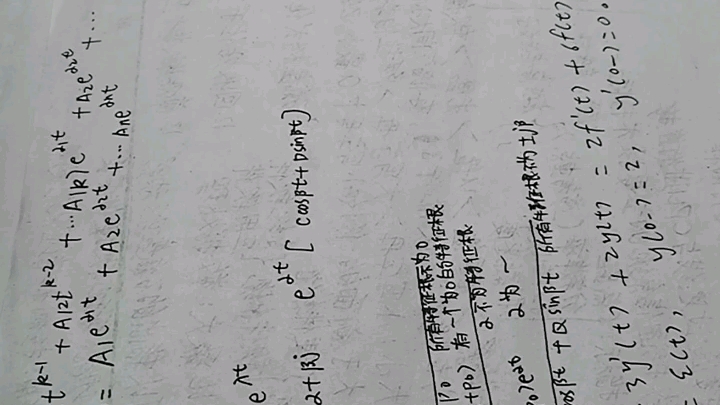 t^{k-1} + A_{12}t^{k-2} + ... A_{1k})e^{α_1t} + A_2e^{α_2t} + ...
= A_1e^{α_1t} + A_2e^{α_2t} + ... A_ne^{α_nt}
e^{λt}
α+βj e^{αt} [ cosβt + Dsinβt]
P_0 所有特征根不为0
+P_0) 有一个为0的特征根
α不为特征根
)e^{αt} α为一
cosβt + Qsinβt 所有特征根不为±jβ
3y'(t) + 2y(t) = 2f'(t) + 6f(t)
= ε(t), y(0-)=2, y'(0-)=0.